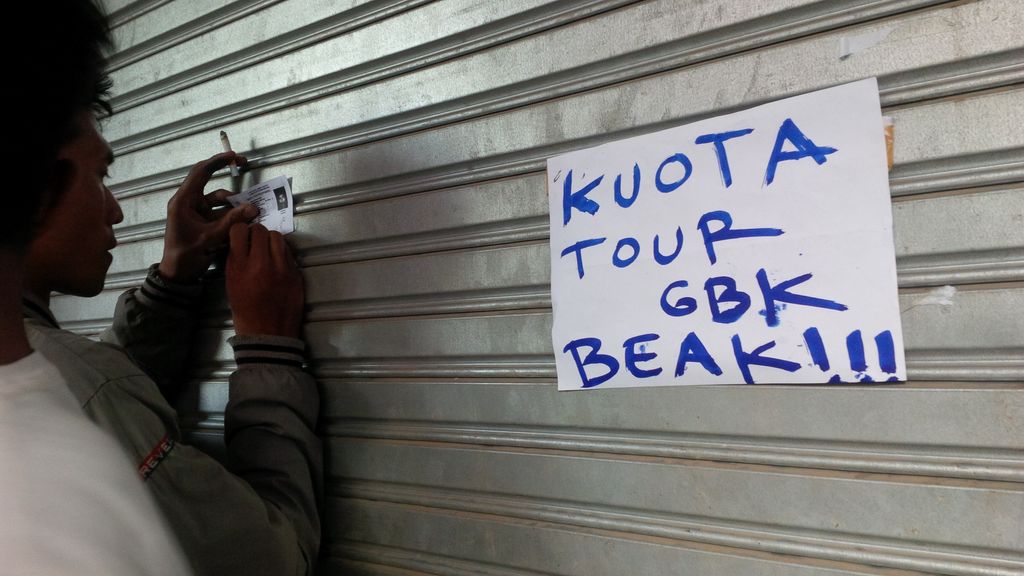 KUOTA
TOUR
GBK
BEAK!!!